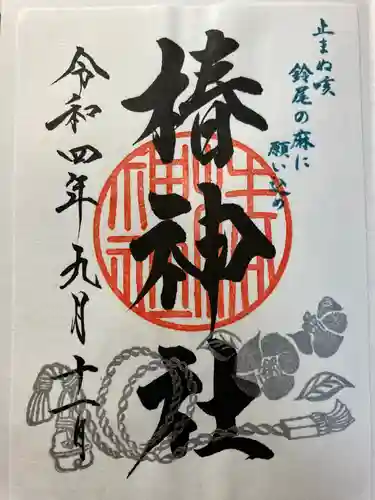 止まぬ咳
鈴尾の麻に
願い込め
椿神社
令和四年九月十一日